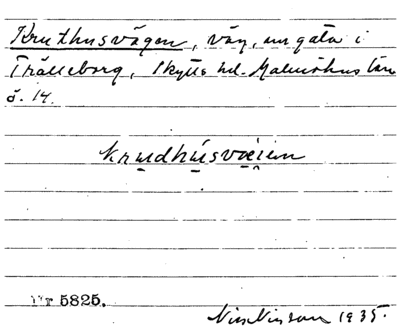 Kruthusvägen, väg, nu gata i
Trälleborg, Skytts hd. Malmöhus län
s. 14.
krudhúsvæien
Nr 5825.
Nils Nilsson 1935.